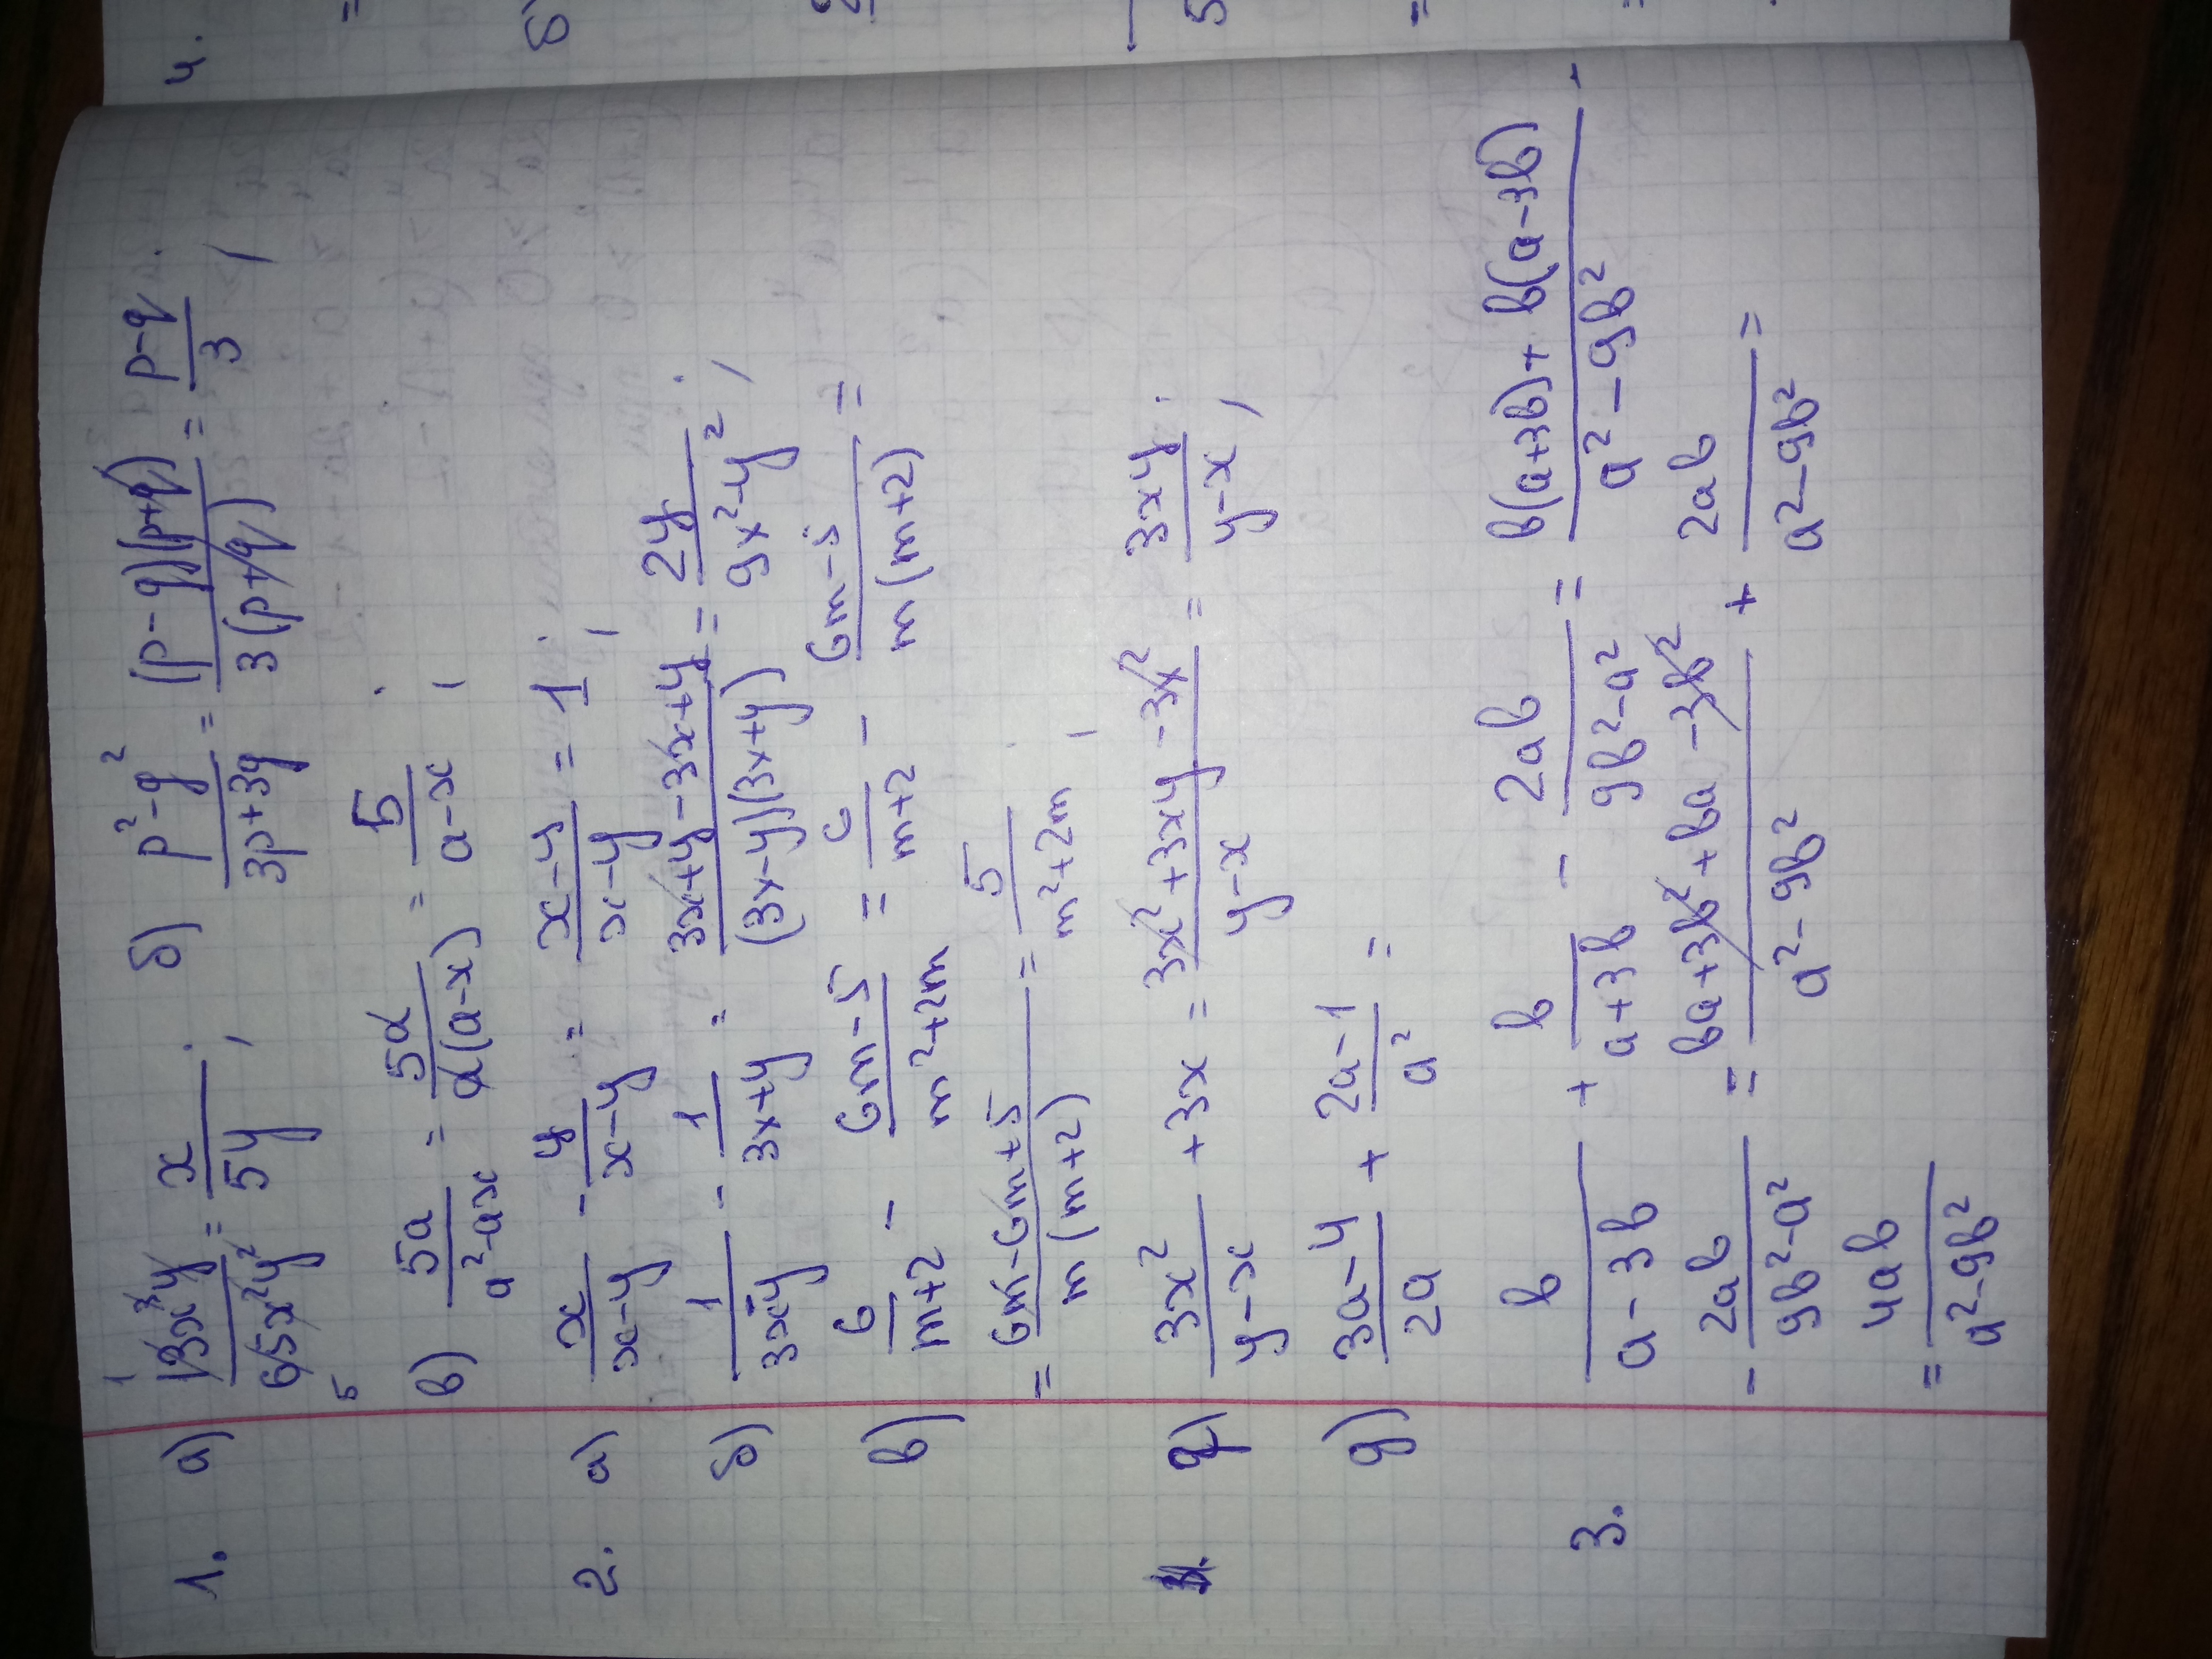 1. а) 13x³y/65x²y² = x/5y ; б) p²-q²/3p+3q = (p-q)(p+q)/3(p+q) = p-q/3 ;
1 5
в) 5a/a²-ax = 5a/a(a-x) = 5/a-x ;
2. а) x/x-y - y/x-y = x-y/x-y = 1 ;
б) 1/3x-y - 1/3x+y = 3x+y-3x+y/(3x-y)(3x+y) = 2y/9x²-y² ;
в) 6/m+2 - 6m-5/m²+2m = 6/m+2 - 6m-5/m(m+2) =
= 6m-6m+5/m(m+2) = 5/m²+2m ;
3x²/y-x + 3x = 3x²+3xy-3x²/y-x = 3xy/y-x ;
д) 3a-4/2a + 2a-1/a² =
3. b/a-3b + b/a+3b - 2ab/9b²-a² = b(a+3b)+b(a-3b)/a²-9b² -
- 2ab/9b²-a² = ba+3b²+ba-3b²/a²-9b² + 2ab/a²-9b² =
= 4ab/a²-9b²
4.
=
б)
5
=
=